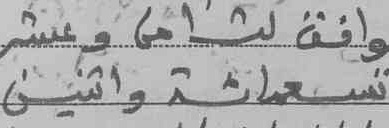 وافق لثامن وعشر
تسعمائة واثنين